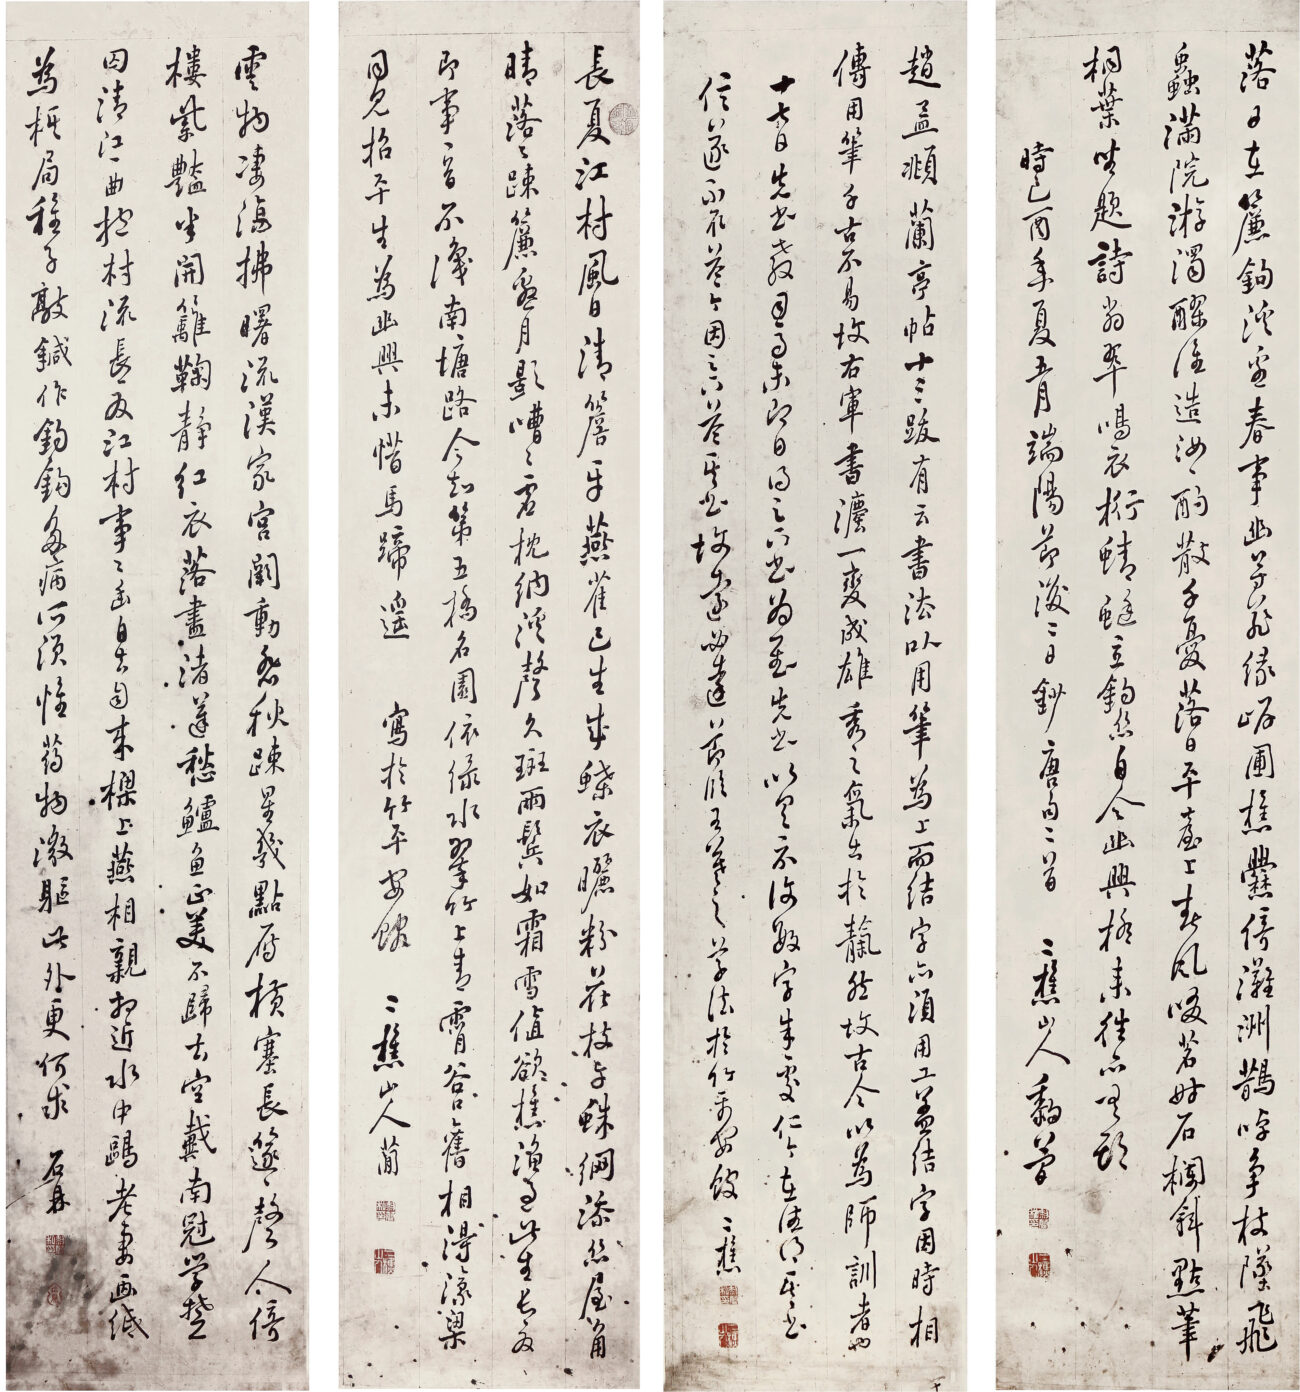 落日在簾鉤溪邊春事幽芳菲緣岸圃樵爨倚灘洲鵲啅爭枝墜飛
蟲滿院游濁醪誰造汝一酌散千憂落日平臺上春風啜茗時石欄斜點筆
桐葉坐題詩翡翠鳴衣桁蜻蜓立釣絲自今幽興極來往亦無期
時己酉年夏五月端陽節後二日鈔唐句二首 二樵山人黎簡
趙孟頫蘭亭帖十三跋有云書法以用筆為上而結字亦須用工蓋結字因時相
傳用筆千古不易故右軍書瀍一變成雄秀之氣出於然故古今以為師訓者也
十七日先書郗司馬未即日得足下書為慰先書以具示復數字朱處仁今在往得其書
信遂不取答今因足下答其書故遠必達 節臨王羲之草法於竹平安館 二樵
長夏江村風日清簷牙燕雀已生成蝶衣曬粉花枝午蛛網添絲屋角
晴落々疎簾邀月影嘈々虛枕納溪聲久斑兩鬢如霜雪直欲樵漁過此生長夏
即事一首不識南塘路今知第五橋名園依綠水翠竹上青霄谷口舊相得濠梁
同見招平生為幽興未惜馬蹄遙 寫於竹平安館 二樵山人簡
雲物凄涼拂曙流漢家宮闕動高秋疎星幾點雁橫塞長篴一聲人倚
樓紫豔半開籬鞠靜紅衣落盡渚蓮愁鱸魚正美不歸去空戴南冠學楚
囚清江一曲抱村流長夏江村事々幽自去自來梁上燕相親相近水中鷗老妻畫紙
為棋局稚子敲鍼作釣鉤多病所須惟藥物微軀此外更何求 石鼎